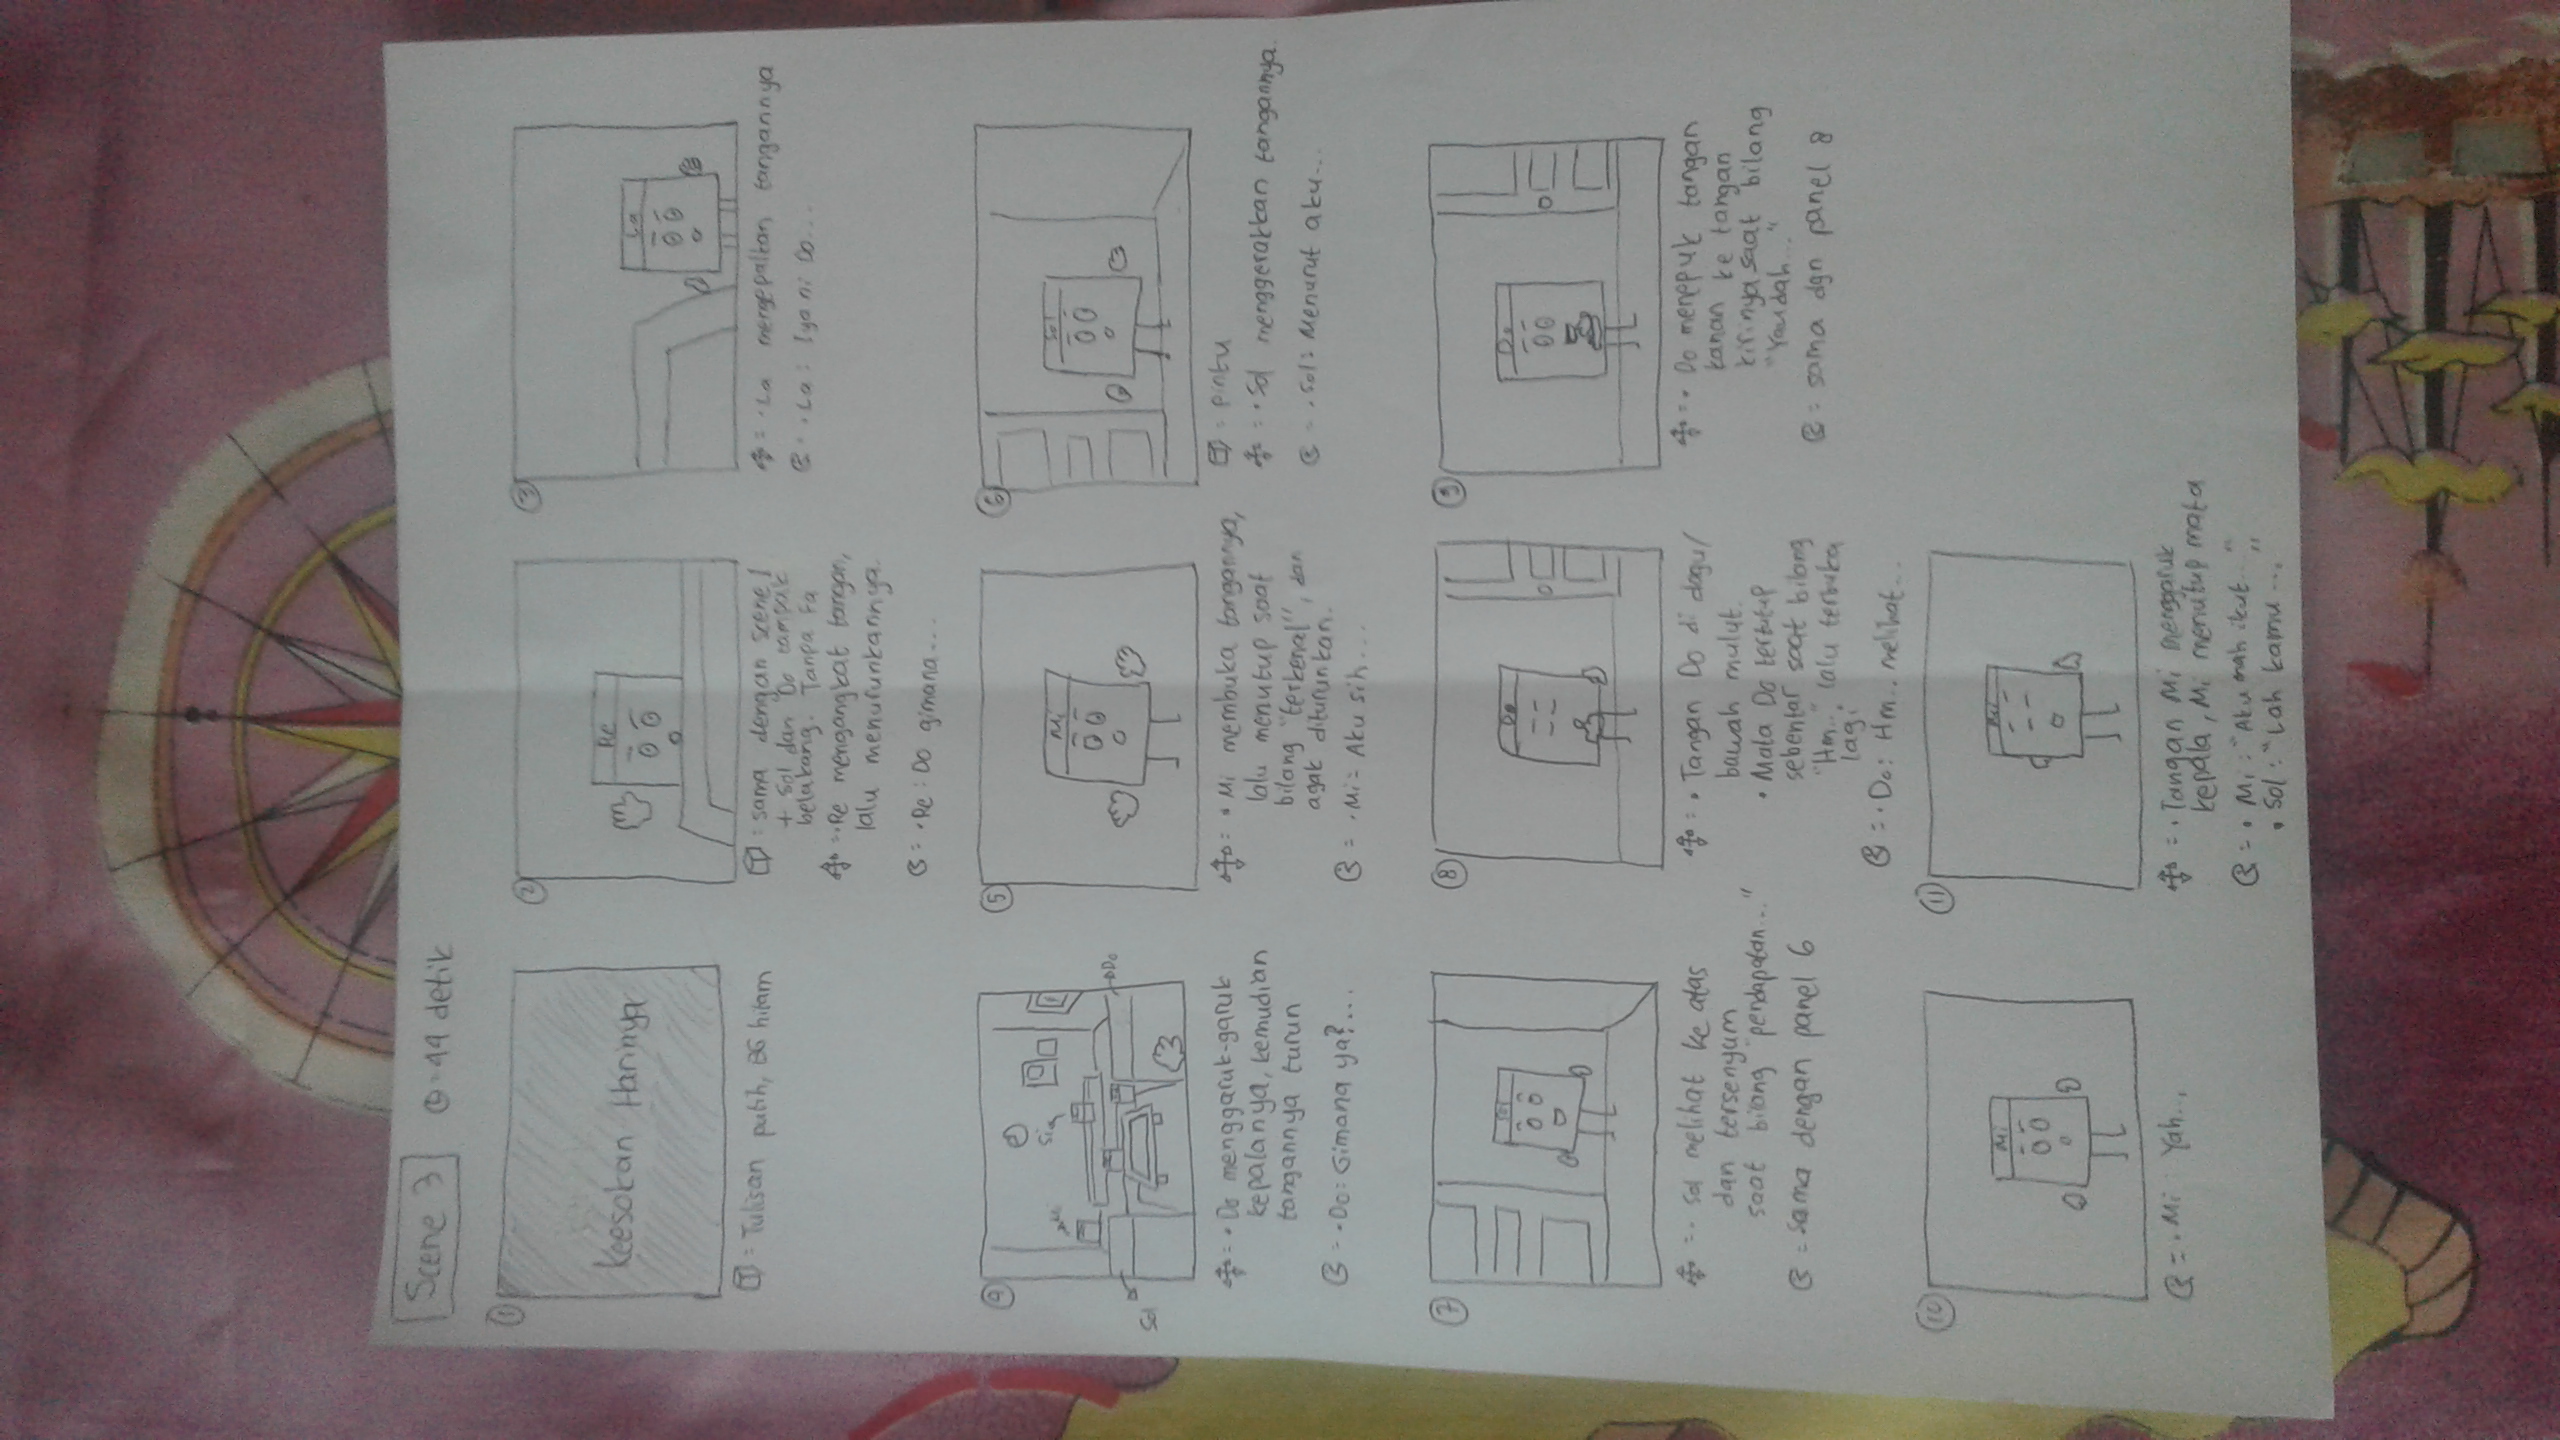 Scene 3
= 44 detik
1
Keesokan Harinya
= Tulisan putih, BG hitam
2
Re
: sama dengan scene 1
+ Sol dan Do tampak
belakang. Tanpa Fa
= • Re mengangkat tangan,
lalu menurunkannya.
= • Re : Do gimana...
3
La
= • La mengepalkan tangannya
= • La : Iya ni Do...
4
Mi
Si
Do
Sol
= • Do menggaruk-garuk
kepalanya, kemudian
tangannya turun
= • Do: Gimana ya?...
5
Mi
= • Mi membuka tangannya,
lalu menutup saat
bilang "terkenal", dan
agak diturunkan.
= • Mi = Aku sih...
6
Sol
= pintu
= • Sol menggerakkan tangannya.
= • Sol : Menurut aku...
7
Sol
= • Sol melihat ke atas
dan tersenyum
saat bilang "pendapatan..."
= sama dengan panel 6
8
Do
= • Tangan Do di dagu/
bawah mulut.
• Mata Do tertutup
sebentar saat bilang
"Hm..." lalu terbuka
lagi
= • Do: Hm.. melihat...
9
Do
= • Do menepuk tangan
kanan ke tangan
kirinya saat bilang
"Yaudah..."
= sama dgn panel 8
10
Mi
= • Mi : Yah...
11
Mi
= • Tangan Mi menggaruk
kepala, Mi menutup mata
= • Mi : "Aku mah ikut..."
• Sol : "Lah kamu..."